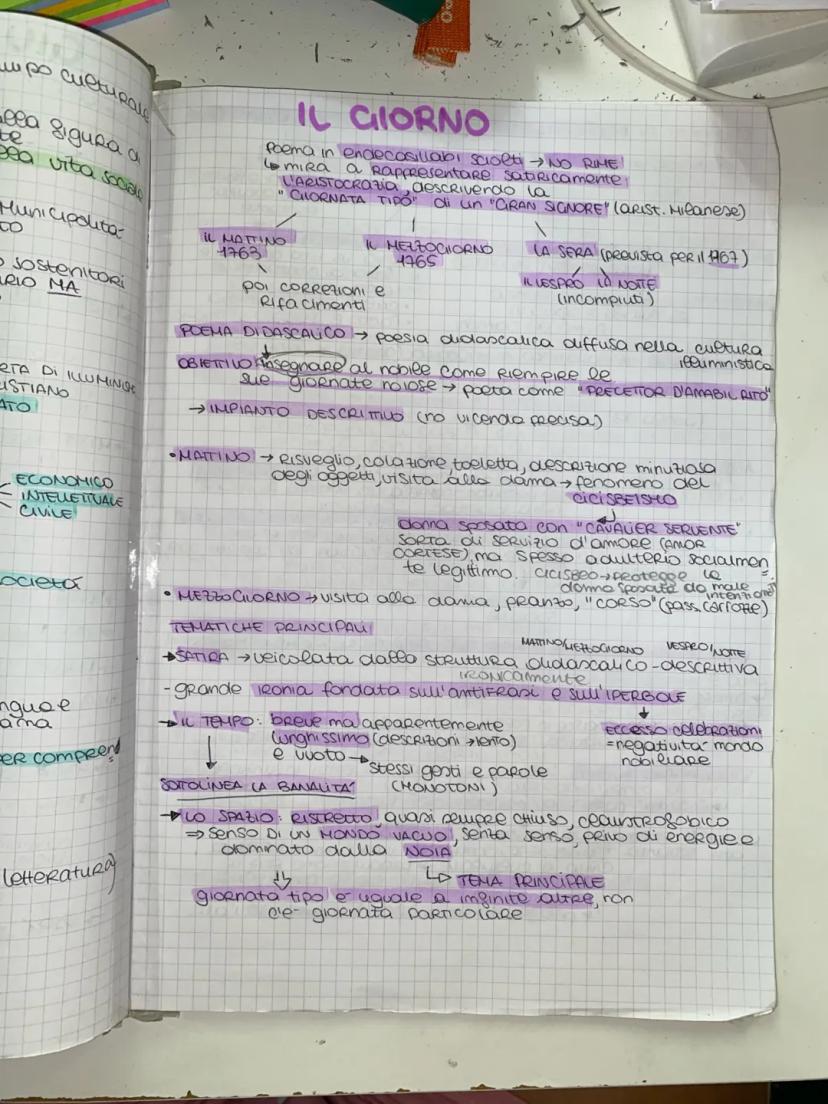 mpo culturale
ella figura di
te
lla vita sociale
Municipolita-
to
o sostenitori
ARIO MA
ETA DI ILLUMINIS
ISTIANO
ATO
ECONOMICO
INTELLETTUALE
CIVILE
ocietà
ngua e
ama
PER COMPREND
letteratura)
IL GIORNO
Poema in endecasillabi sciolti → NO RIME
↳ mira a RAPPRESENTARE SATIRICAMENTE
L'ARISTOCRAZIA, descrivendo la
"GIORNATA TIPO" di un "GRAN SIGNORE" (arist. Milanese)
IL MATTINO
1763
IL MEZZOGIORNO
1765
LA SERA (prevista per il 1767)
poi CORREZIONI e
RIFACIMENTI
IL VESPRO LA NOTTE
(incompiuti)
POEMA DIDASCALICO → poesia didascalica diffusa nella cultura
illuministica
OBIETTIVO insegnare al nobile come riempire le
sue giornate noiose → poeta come "PRECETTOR D'AMABIL RITO"
→ IMPIANTO DESCRITTIVO (no vicenda precisa)
• MATTINO → risveglio, colazione, toeletta, descrizione minuziosa
degli oggetti, visita alla dama → fenomeno del
CICISBEISMO
donna sposata con "CAVALIER SERVENTE"
sorta di servizio d'amore (AMOR
CORTESE), ma spesso adulterio socialmen
te legittimo. CICISBEO → protegge la =
donna sposata da male
intenzioni
• MEZZOGIORNO → visita alla dama, pranzo, "CORSO" (pass. carrozze)
TEMATICHE PRINCIPALI
MATTINO/MEZZOGIORNO VESPRO/NOTTE
→ SATIRA → veicolata dalla struttura didascalico-descrittiva
IRONICAMENTE
- grande ironia fondata sull'antifrasi e sull'IPERBOLE
→ IL TEMPO: breve ma apparentemente
lunghissimo (descrizioni → lento)
e vuoto → stessi gesti e parole
(MONOTONI)
eccesso celebrazioni
= negatività mondo
nobiliare
SOTTOLINEA LA BANALITA'
→ LO SPAZIO: RISTRETTO, quasi sempre chiuso, claustrofobico
⇒ senso DI UN MONDO VACUO, senza senso, privo di energie e
dominato dalla NOIA
↳ TEMA PRINCIPALE
giornata tipo è uguale a infinite altre, non
c'è giornata particolare